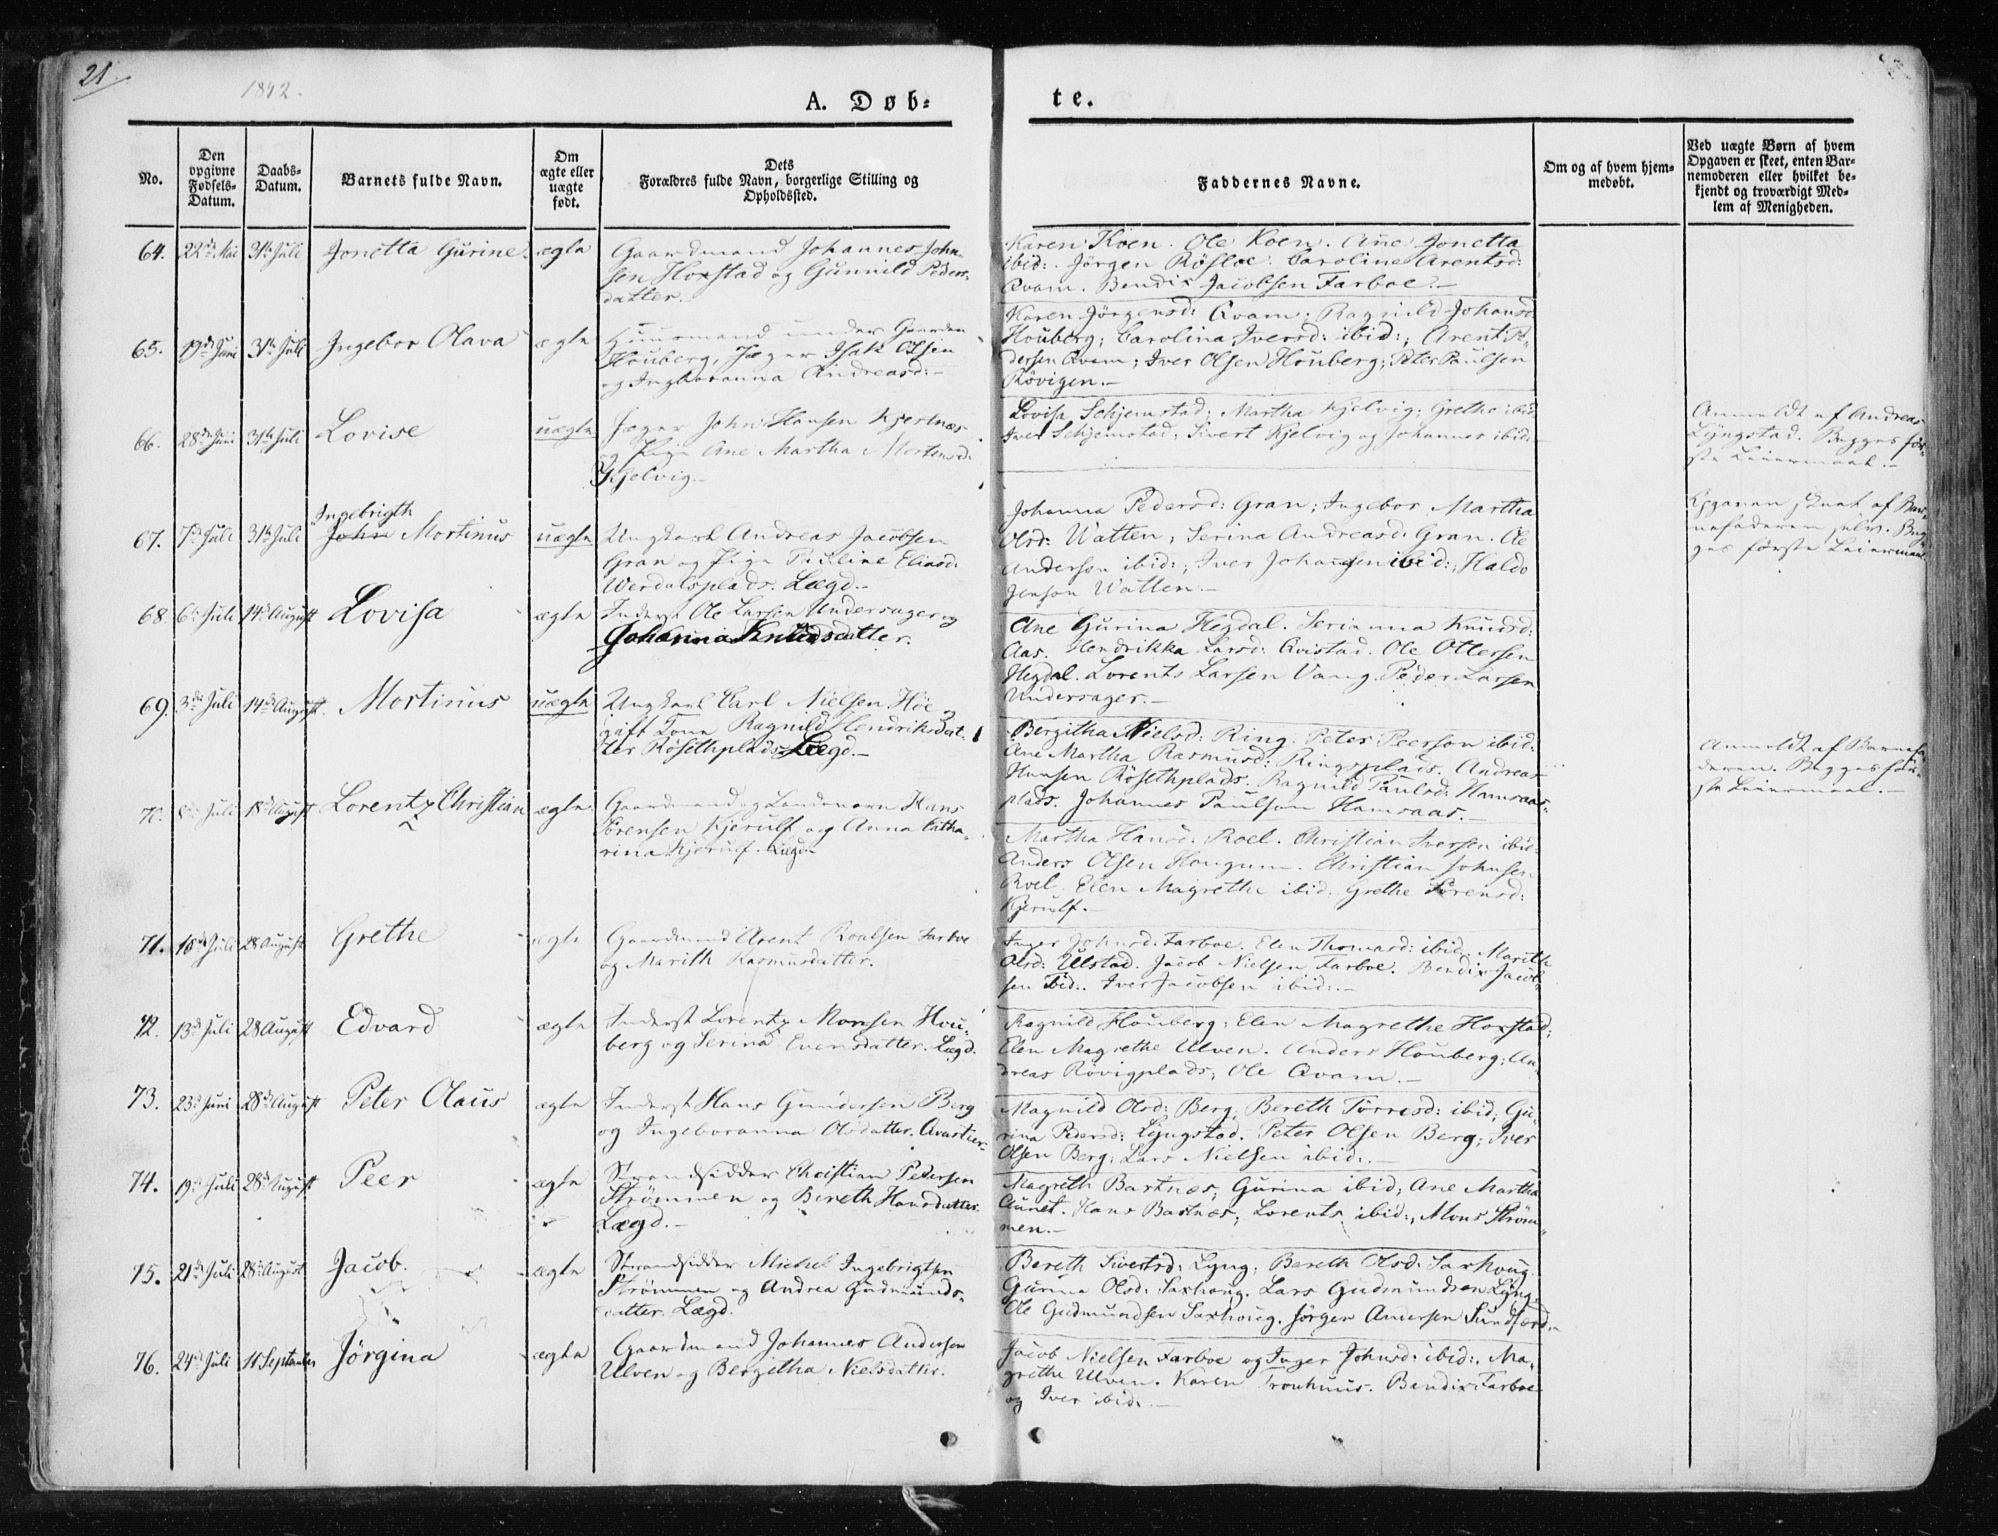 21.
1842.
A. Døb-
te.
No.
Den opgivne Fødsels-Datum.
Daabs-Datum.
Barnets fulde Navn.
Om ægte eller uægte født.
Dets Forældres fulde Navn, borgerlige Stilling og Opholdssted.
Faddernes Navne.
Om og af hvem hjem-medøbt.
Ved uægte Børn af hvem Opgaven er skeet, enten Bar-nemoderen eller hvilket be-kjendt og troværdigt Med-lem af Menigheden.
64. 22de Mai 31te Juli Jonetta Gurine. ægte
Gaardmand Johannes John-
sen Horstad og Gunnild Peders-
datter.
Karen Koen. Ole Koen. Ane Jonetta
ibid:. Jörgen Rösloe. Caroline Arentsd:
Qvam. Bendix Jacobsen Farboe.-
65. 19de Juni 31te Juli Ingebor Olava ægte
Huusmand under Gaarden
Houberg, Jæger Isak Olsen
og Ingeboranna Andreasd:-
Karen Jörgensd: Qvam; Ragnild Johansd
Houberg; Carolina Iversd: ibid:; Arent Pe-
dersen Qvam; Iver Olsen Houberg; Peter Paulsen
Rövigen.-
66. 28de Juni 31te Juli Lovise uægte
Jæger John Hansen Kjertnæs
og Pige Ane Martha Mortensd:
Kjelvig.-
Lovisa Schjemstad; Martha Kjelvig; Grethe ibid
Iver Schjemstad; Sivert Kjelvig og Johannes ibid:
Anmeldt af Andreas
Lÿngstad. Begges för-
ste Leiermaal.-
67. 7de Juli 31te Juli Ingebrigth
John Mortinus uægte
Ungkarl Andreas Jacobsen
Gran og Pige Pauline Eliasd:
Werdalsplads. Lægd.-
Johanna Pedersd: Gran; Ingebor Martha
Olsd: Watten; Serina Andreasd: Gran. Ole
Andersen ibid:; Iver Johansen ibid:; Haldo
Jensen Watten.-
Opgaven skeet af Bar-
nefaderen selv. Beg-
ges förste Leiermaal
68. 6te Juli 14de August Lovisa ægte
Inderst Ole Larsen Undersager og
Johanna Knudsdatter.
Ane Gurina Hegdal. Serianna Knudsd:
Aas. Hendrikka Larsd: Qvistad. Ole Ottersen
Hegdal. Lorents Larsen Vang. Peder Larsen
Undersager.-
69. 3de Juli 14de August. Mortinus uægte
Ungkarl Carl Nielsen Höe og
gift Kone Ragnild Hendriksdat-
ter Rösethplads. Lægd.-
Bergitha Nielsd: Ring. Peter Peerson ibid:
Ane Martha Rasmusd: Ringsplads. Andreas
Hansen Rösethplads. Ragnild Paulsd: Hamsaas-
plads. Johannes Paulsen Hamsaas.-
Anmeldt af Barnefa-
deren. Begges för-
ste Leiermaal.-
70. 8de Juli 18de August Lorentz Christian ægte
Gaardmand og Landeværn Hans
Sörensen Kjerulf og Anna Catha-
rina Kjerulf. Lægd.-
Martha Hansd: Roel. Christian Iversen ibid:
Anders Olsen Haugum. Christian Johnsen
Roel. Elen Magrethe ibid. Grethe Sörensd:
Kjerulf.-
71. 10de Juli 28 August Grethe ægte
Gaardmand Arent Roalsen Farboe
og Marith Rasmusdatter.
Inger Johnsd: Farboe. Elen Thomasd: ibid. Marith
Olsd: Ulstad. Jacob Nielsen Farboe. Bendix Jacob-
sen ibid:. Iver Jacobsen ibid:.-
72. 13de Juli 28 August Edvard ægte
Inderst Lorentz Monsen Hou-
berg og Serina Evensdatter. Lægd.
Ragnild Houberg; Elen Magrethe Horstad;
Elen Magrethe Ulven. Anders Houberg; An-
dreas Rövigplads; Ole Qvam.-
73. 23de Juni 28de August Peter Olaus ægte
Inderst Hans Gundersen Berg
og Ingeboranna Olsdatter.
Magnild Olsd: Berg. Bereth Torresd: ibid; Gu-
rina Pedersd: Lÿngstad. Peter Olsen Berg; Iver
Olsen Berg; Lars Nielsen ibid:.-
74. 19de Juli 28de August Peer ægte
Strandsidder Christian Pedersen
Strömmen og Bereth Hansdatter.
Lægd.-
Magreth Bartnæs; Gurina ibid; Ane Martha
Aunet. Hans Bartnæs; Lorents ibid:; Mons Ström-
men.-
75. 21de Juli 28de August Jacob. ægte
Strandsidder Michel Ingebrigtsen
Strömmen og Andrea Gudmunds-
datter. Lægd.
Bereth Sivertsd: Lÿng; Bereth Olsd: Saxhoug.
Gurina Olsd: Saxhoug. Lars Gudmundsen Lÿng.
Ole Gudmundsen Saxhoug. Jörgen Andersen Sundfærd.
76. 24de Juli 11 September Jörgina ægte
Gaardmand Johannes Andersen
Ulven og Bergitha Nielsdatter.
Jacob Nielsen Farboe og Inger Johnsd: ibid:. Ma-
grethe Ulven. Karen Tronhuus. Bendix Farboe
og Iver ibid:.-